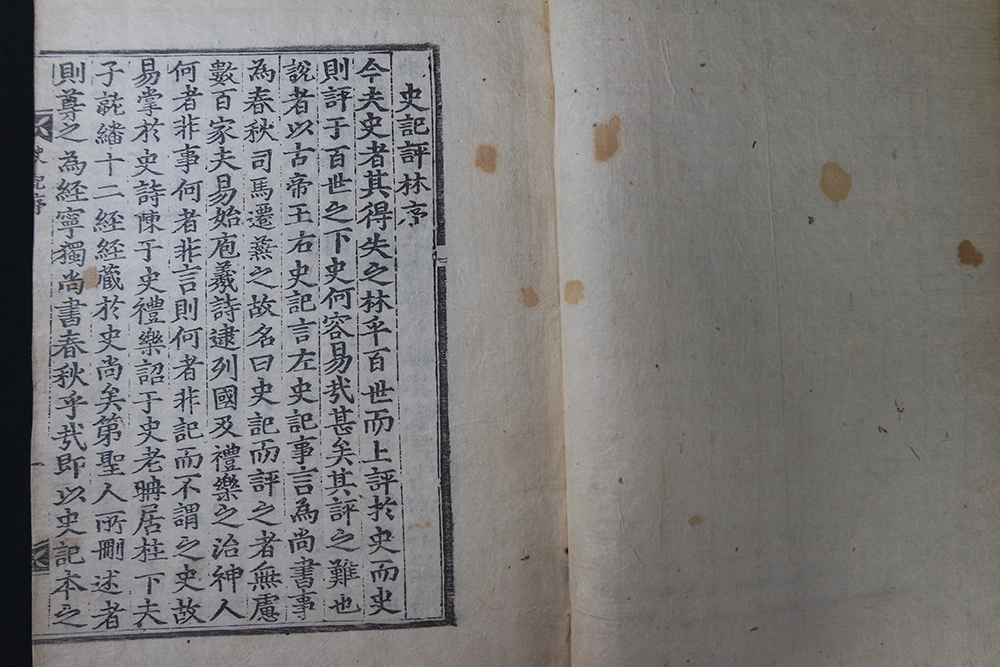 史記評林序
今夫史者其得失之林乎百世而上評於史而史
則評于百世之下史何容易㢤甚矣其評之難也
說者以古帝王右史記言左史記事言為尚書事
為春秋司馬遷兼之故名曰史記而評之者無慮
數百家夫易始庖羲詩逮列國及禮樂之治神人
何者非事何者非言則何者非記而不謂之史故
易掌於史詩陳于史禮樂詔于史老聃居柱下夫
子繙十二經經蔵於史尚矣第聖人所刪述者
則尊之為經寧獨尚書春秋乎㢤即以史記本之